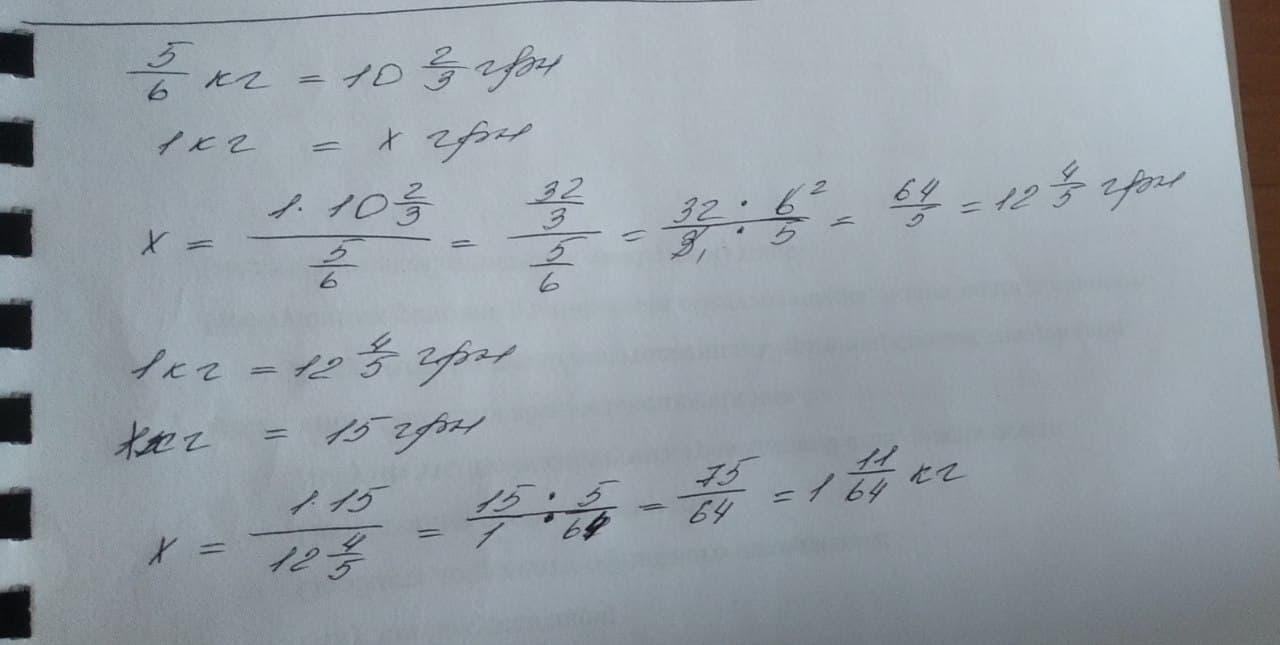 5/6 кг = 10 2/3 грн
1 кг = х грн
х = (1 · 10 2/3)/(5/6) = (32/3)/(5/6) = (32 · 6²)/(3₁ · 5) = 64/5 = 12 4/5 грн
1 кг = 12 4/5 грн
х кг = 15 грн
х = (1·15)/(12 4/5) = (15 · 5)/(1 · 64) = 75/64 = 1 11/64 кг